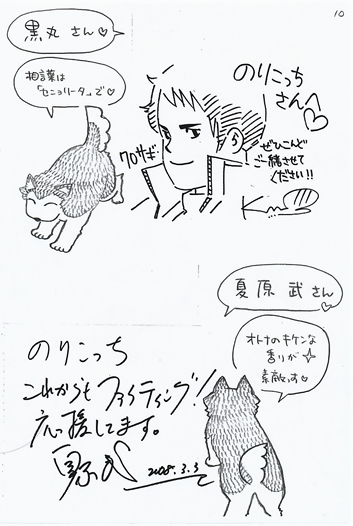 10
黒丸 さん♡
相言葉は
「セニョリータ」で♡
のりこっち
さんへ♡
クロサギ
ぜひこんど
ご一緒させて
ください!!
夏原 武 さん
オトナのキケンな
香りが
素敵です♡
のりこっち
これからも ファイティング!
応援してます。
2008.3.3